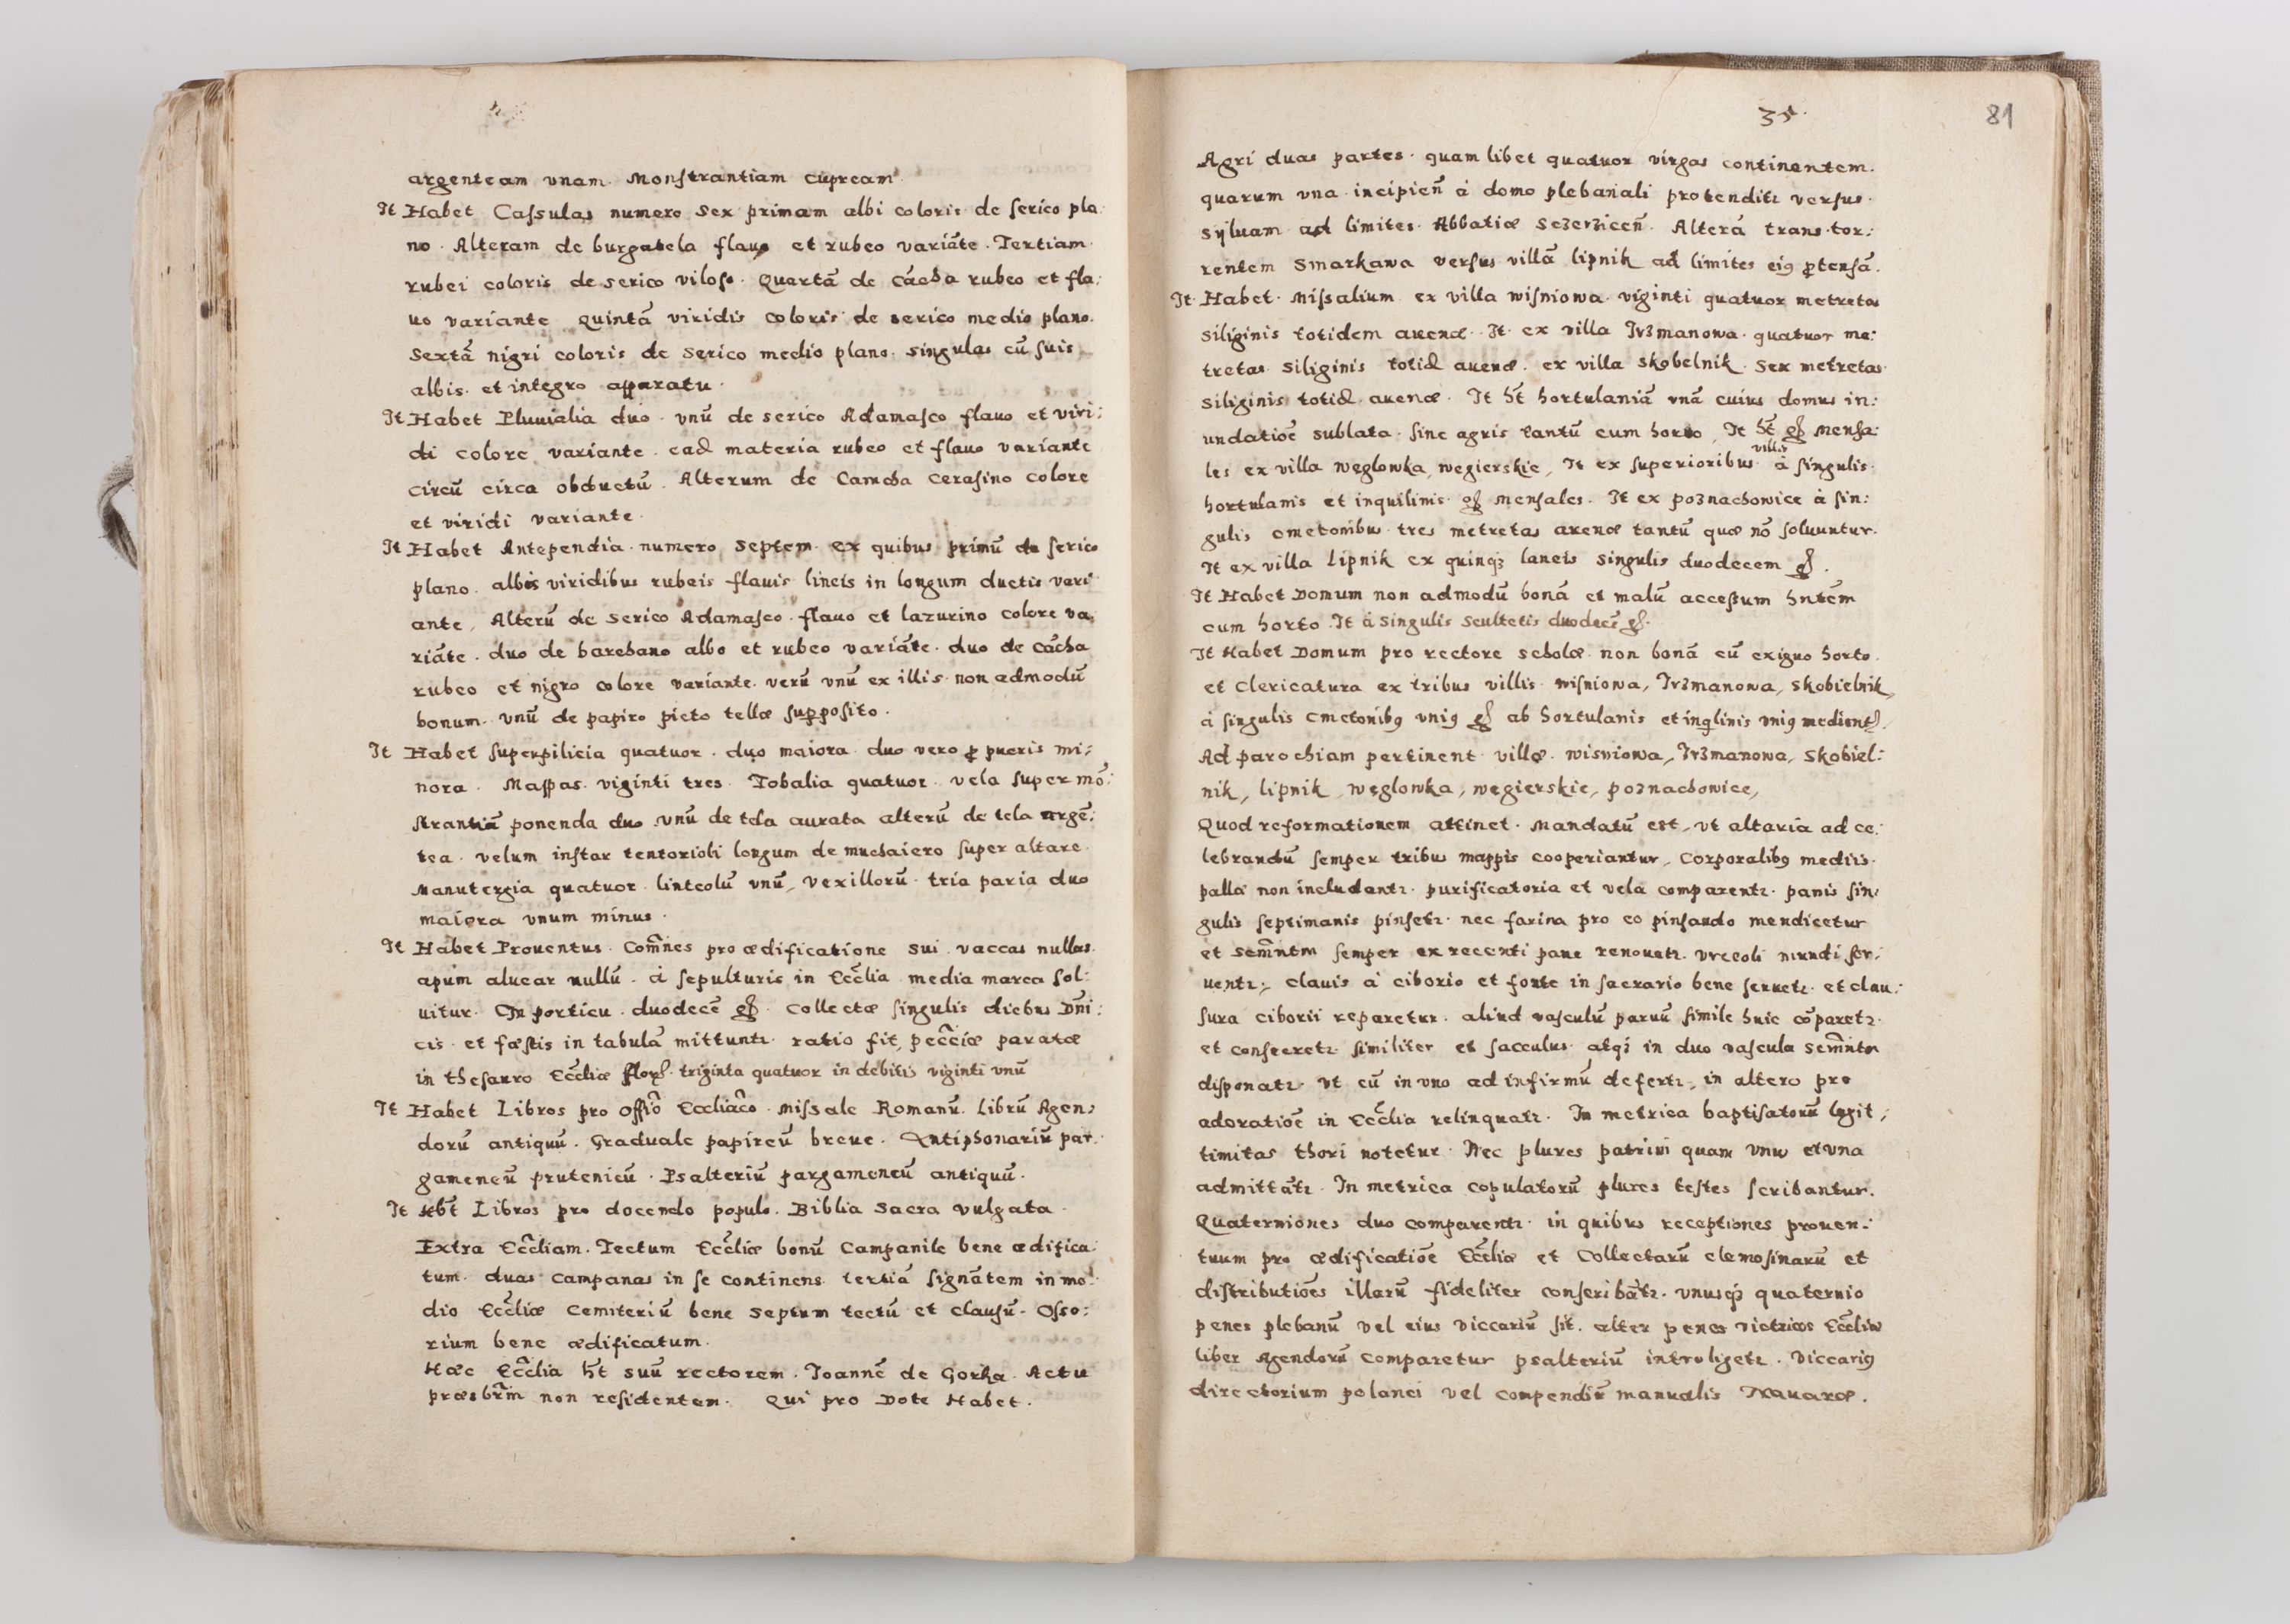 argenteam vnam. Monstrantiam cupream
It Habet Cassulas numero sex primam albi coloris de serico pla:
no. Alteram de burgatela flauo et rubeo variāte. Tertiam
rubei coloris de serico viloso. Quartā de Cācha rubeo et fla:
uo variante Quintā viridis coloris de serico medio plano.
Sextā nigri coloris de serico medio plano. singulas cū suis
albis. et integro apparatu.
It Habet Pluuialia duo. vnū de serico Adamasco flauo et viri:
di colore variante. ead materia rubeo et flauo variante
circū circa obductū. Alterum de Camcha Cerasino colore
et viridi variante.
It Habet Antependia numero septem ex quibus primū de serico
plano. albis viridibus rubeis flauis lineis in longum ductis vari
ante, Alterū de serico Adamasco. flauo et lazurino colore va:
riāte. duo de barchano albo et rubeo variāte. duo de Cācha
rubeo et nigro colore variante. verū vnū ex illis non admodū
bonum. vnū de papiro picto tellæ supposito.
It Habet superpilicia quatuor. duo maiora duo vero ꝓ pueris mi:
nora. Mappas viginti tres. Tobalia quatuor. vela super mō:
strantiā ponenda duo vnū de tela aurata alterū de tela argē:
tea. velum instar tentorioli longum de muchaiero super altare.
Manutergia quatuor. linteolū vnū, vexillorū tria paria duo
maiora vnum minus.
It Habet Prouentus. Com̄nes pro ædificatione sui vaccas nullas
apum aluear nullū. à sepulturis in Eccl̄ia media marca sol:
uitur. In porticu duodecē gſ. Collectæ singulis diebus Dn̄i:
cis et fæstis in tabulā mittuntr. ratio fit pecc̄iæ paratæ
in thesauro Eccl̄iæ flor. triginta quatuor in debitis viginti vnū
It Habet Libros pro offīo Eccliac̄o. Missale Romanū. Librū Agen:
dorū antiquū. Graduale papireū breue. Antiphonariū par:
gameneū prutenicū. Psalteriū pargameneū antiquū.
It Hb̄t Libros pro docendo populo. Biblia Sacra Vulgata
Extra Eccl̄iam. Tectum Eccl̄iæ bonū Campanile bene ædifica:
tum. duas campanas in se continens tertiā signātem in me:
dio Eccl̄iæ Cemiteriū bene septum tectū et clausū. Osso:
rium bene ædificatum.
Hæc Eccl̄ia h̄t suū rectorem. Joannē de Gorka. Actu
præsbr̄m non residentem. Qui pro Dote Habet.
35.
81
Agri duas partes. quam libet quatuor virgas continentem.
quarum vna incipien̄ à domo plebanali protenditr versus
syluam ad limites Abbatiæ Sczerzicen̄. Alterā trans tor:
rentem Smarkawa versus villā Lipnik ad limites eiꝰ ꝓtensā.
It Habet Missalium ex villa Wisniowa viginti quatuor metretas
siliginis totidem auenæ. It ex villa Irzmanowa quatuor me:
tretas siliginis totid auenæ. ex villa Skobelnik. Sex metretas
siliginis totid auenæ. It h̄t hortulaniā vnā cuius domus in:
undatioē sublata. sine agris tantū cum horto, It h̄t gſ Mensa:
les ex villa Węglowka, węgierskie, It ex superioribus villis à singulis
hortulanis et inquilinis gſ Mensales. It ex Poznachowice à sin:
gulis cmetonibus tres metretas auenæ tantū quæ nō soluuntur.
It ex villa Lipnik ex quinqꝫ laneis singulis duodecem gſ.
It Habet Domum non admodū bonā et malū accessum hntēm
cum horto. It à singulis Scultetis duodecē gſ.
It Habet Domum pro rectore scholæ non bonā cū exiguo horto.
et Clericatura ex tribus villis Wisniowa, Irzmanowa, Skobielnik,
à singulis cmetonibꝰ vniꝰ gſ ab hortulanis et inqlinis vniꝰ
Ad parochiam pertinent villæ. Wisniowa, Irzmanowa, Skobiel:
nik, lipnik, węglowka, węgierskie, poznachowice,
Quod reformationem attinet. Mandatū est, vt altaria ad ce:
lebrandū semper tribus mappis cooperiantur, Corporalibꝰ mediis
palla non includantr. purificatoria et vela comparentr. panis sin:
gulis septimanis pinsetr. nec farina pro eo pinsando mendicetur
et Sem̄ntm semper ex recenti pane renouetr. Vrceoli mundi ser:
uentr, clauis à ciborio et fonte in sacrario bene seruetr. et clau:
sura ciborii reparetur. aliud vasculū paruū simile huic cōparetr.
et consecretr similiter et sacculus. atqꝫ in duo vascula Sem̄ntm
disponatr. Vt cū in vno ad infirmū defertr, in altero pro
adoratioē in Eccl̄ia relinquatr. In metrica baptisatorū legit,
timitas thori notetur. Nec plures patrini quam vnus et vna
admittātr. In metrica copulatorū plures testes scribantur.
Quaterniones duo comparentr. in quibus receptiones prouen:
tuum pro ædificatiōe Eccl̄iæ et Collectarū elemosinarū et
distributiōes illarū fideliter conscribātr. vnusqꝫ quaternio
penes plebanū vel eius Viccariū sit. alter penes victricos Eccl̄iæ
liber Agendorū comparetur psalteriū introligetr. Viccariꝰ
directorium polanci vel compendiū manualis Nauaræ.